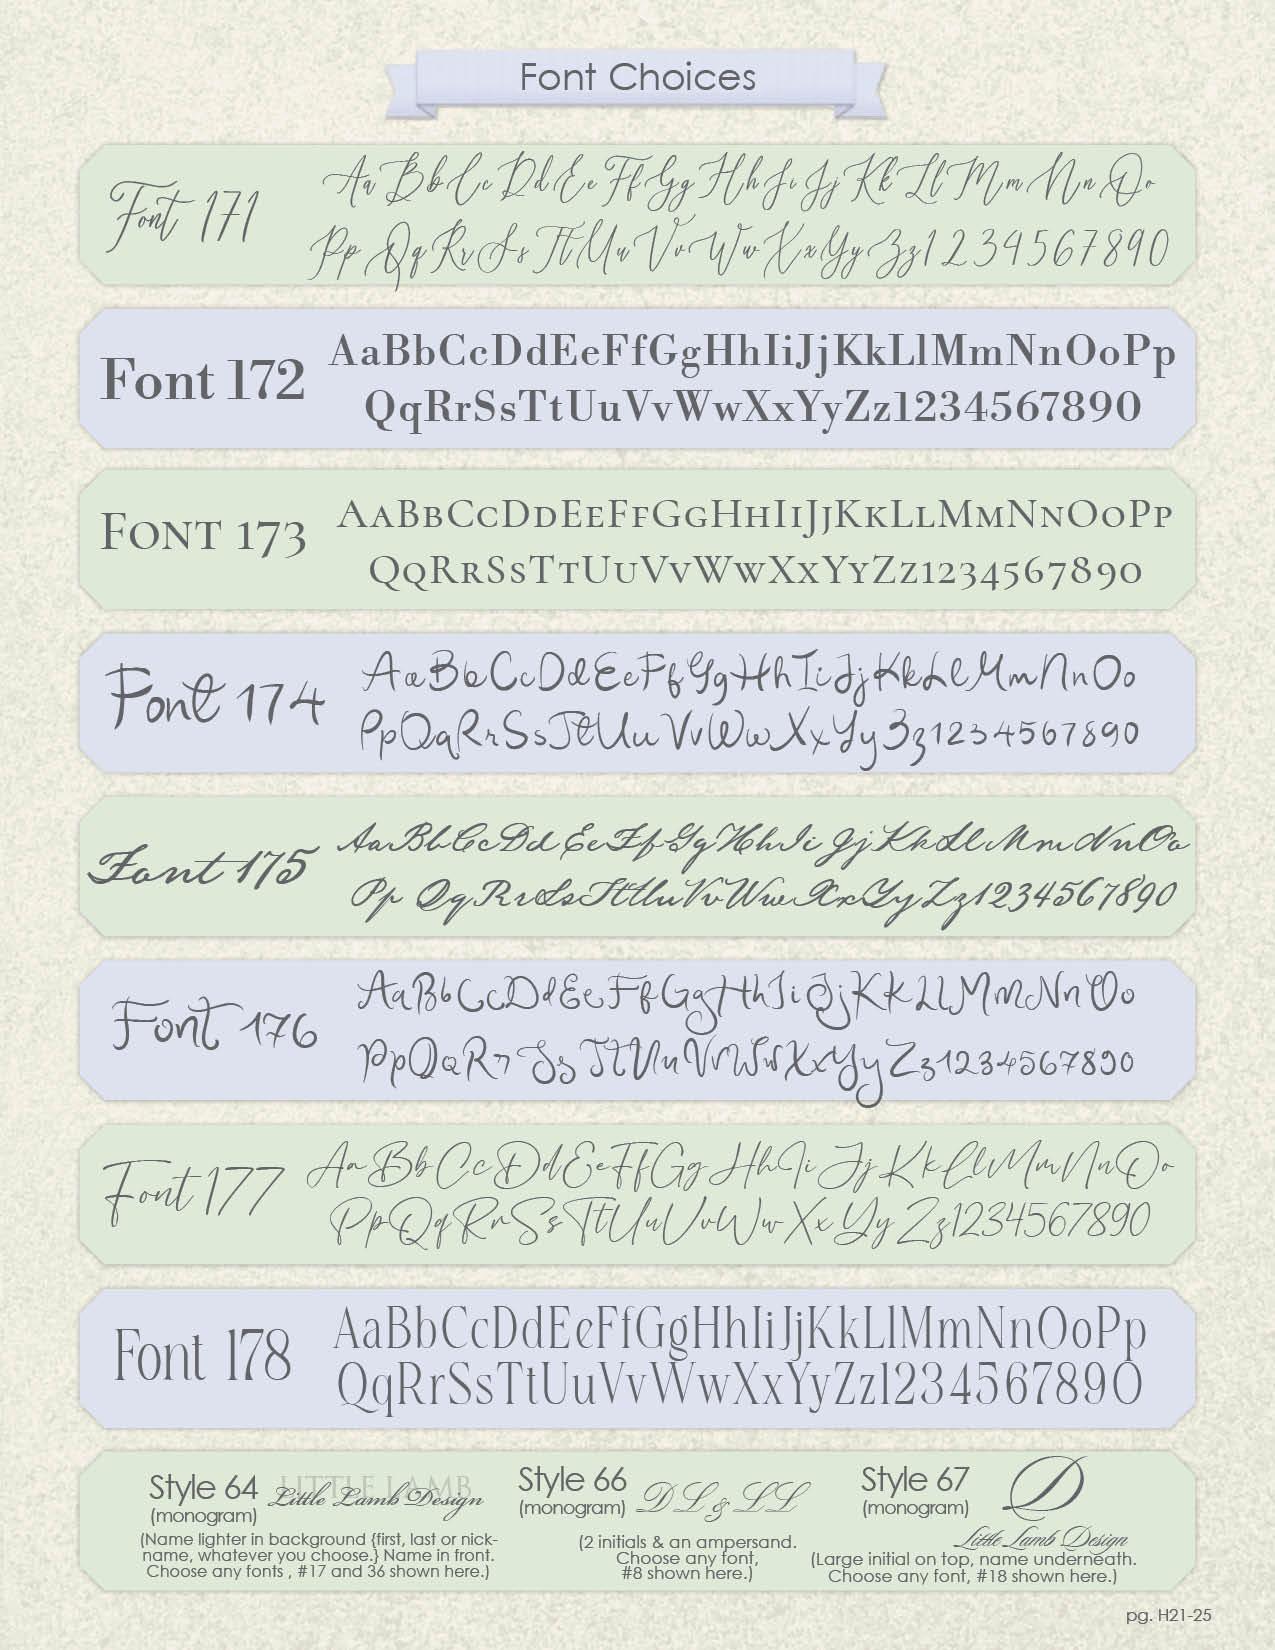 Font Choices
Font 171
Aa Bb Cc Dd Ee Ff Gg Hh Ii Jj Kk Ll Mm Nn Oo
Pp Qq Rr Ss Tt Uu Vv Ww Xx Yy Zz 1 2 3 4 5 6 7 8 9 0
Font 172
AaBbCcDdEeFfGgHhIiJjKkLlMmNnOoPp
QqRrSsTtUuVvWwXxYyZz1234567890
Font 173
AaBbCcDdEeFfGgHhIiJjKkLlMmNnOoPp
QqRrSsTtUuVvWwXxYyZz1234567890
Font 174
AaBbCcDdEeFfGgHhIiJjKkLlMmNnOo
PpQqRrSsTtUuVvWwXxYyZz1234567890
Font 175
AaBbCcDdEeFfGgHhIiJjKkLlMmNnOo
Pp QqRrSsTtUuVvWwXxYyZz1234567890
Font 176
AaBbCcDdEeFfGgHhIiJjKkLlMmNnOo
PpQqRrSsTtUuVvWwXxYyZz1234567890
Font 177
AaBbCcDdEeFfGgHhIiJjKkLlMmNnOo
PpQqRrSsTtUuVvWwXxYyZz1234567890
Font 178
AaBbCcDdEeFfGgHhIiJjKkLlMmNnOoPp
QqRrSsTtUuVvWwXxYyZz1234567890
Style 64
(monogram)
LITTLE LAMB
Little Lamb Design
(Name lighter in background {first, last or nick-
name, whatever you choose.} Name in front.
Choose any fonts , #17 and 36 shown here.)
Style 66
(monogram)
DL & LL
(2 initials & an ampersand.
Choose any font,
#8 shown here.)
Style 67
(monogram)
D
Little Lamb Design
(Large initial on top, name underneath.
Choose any font, #18 shown here.)
pg. H21-25